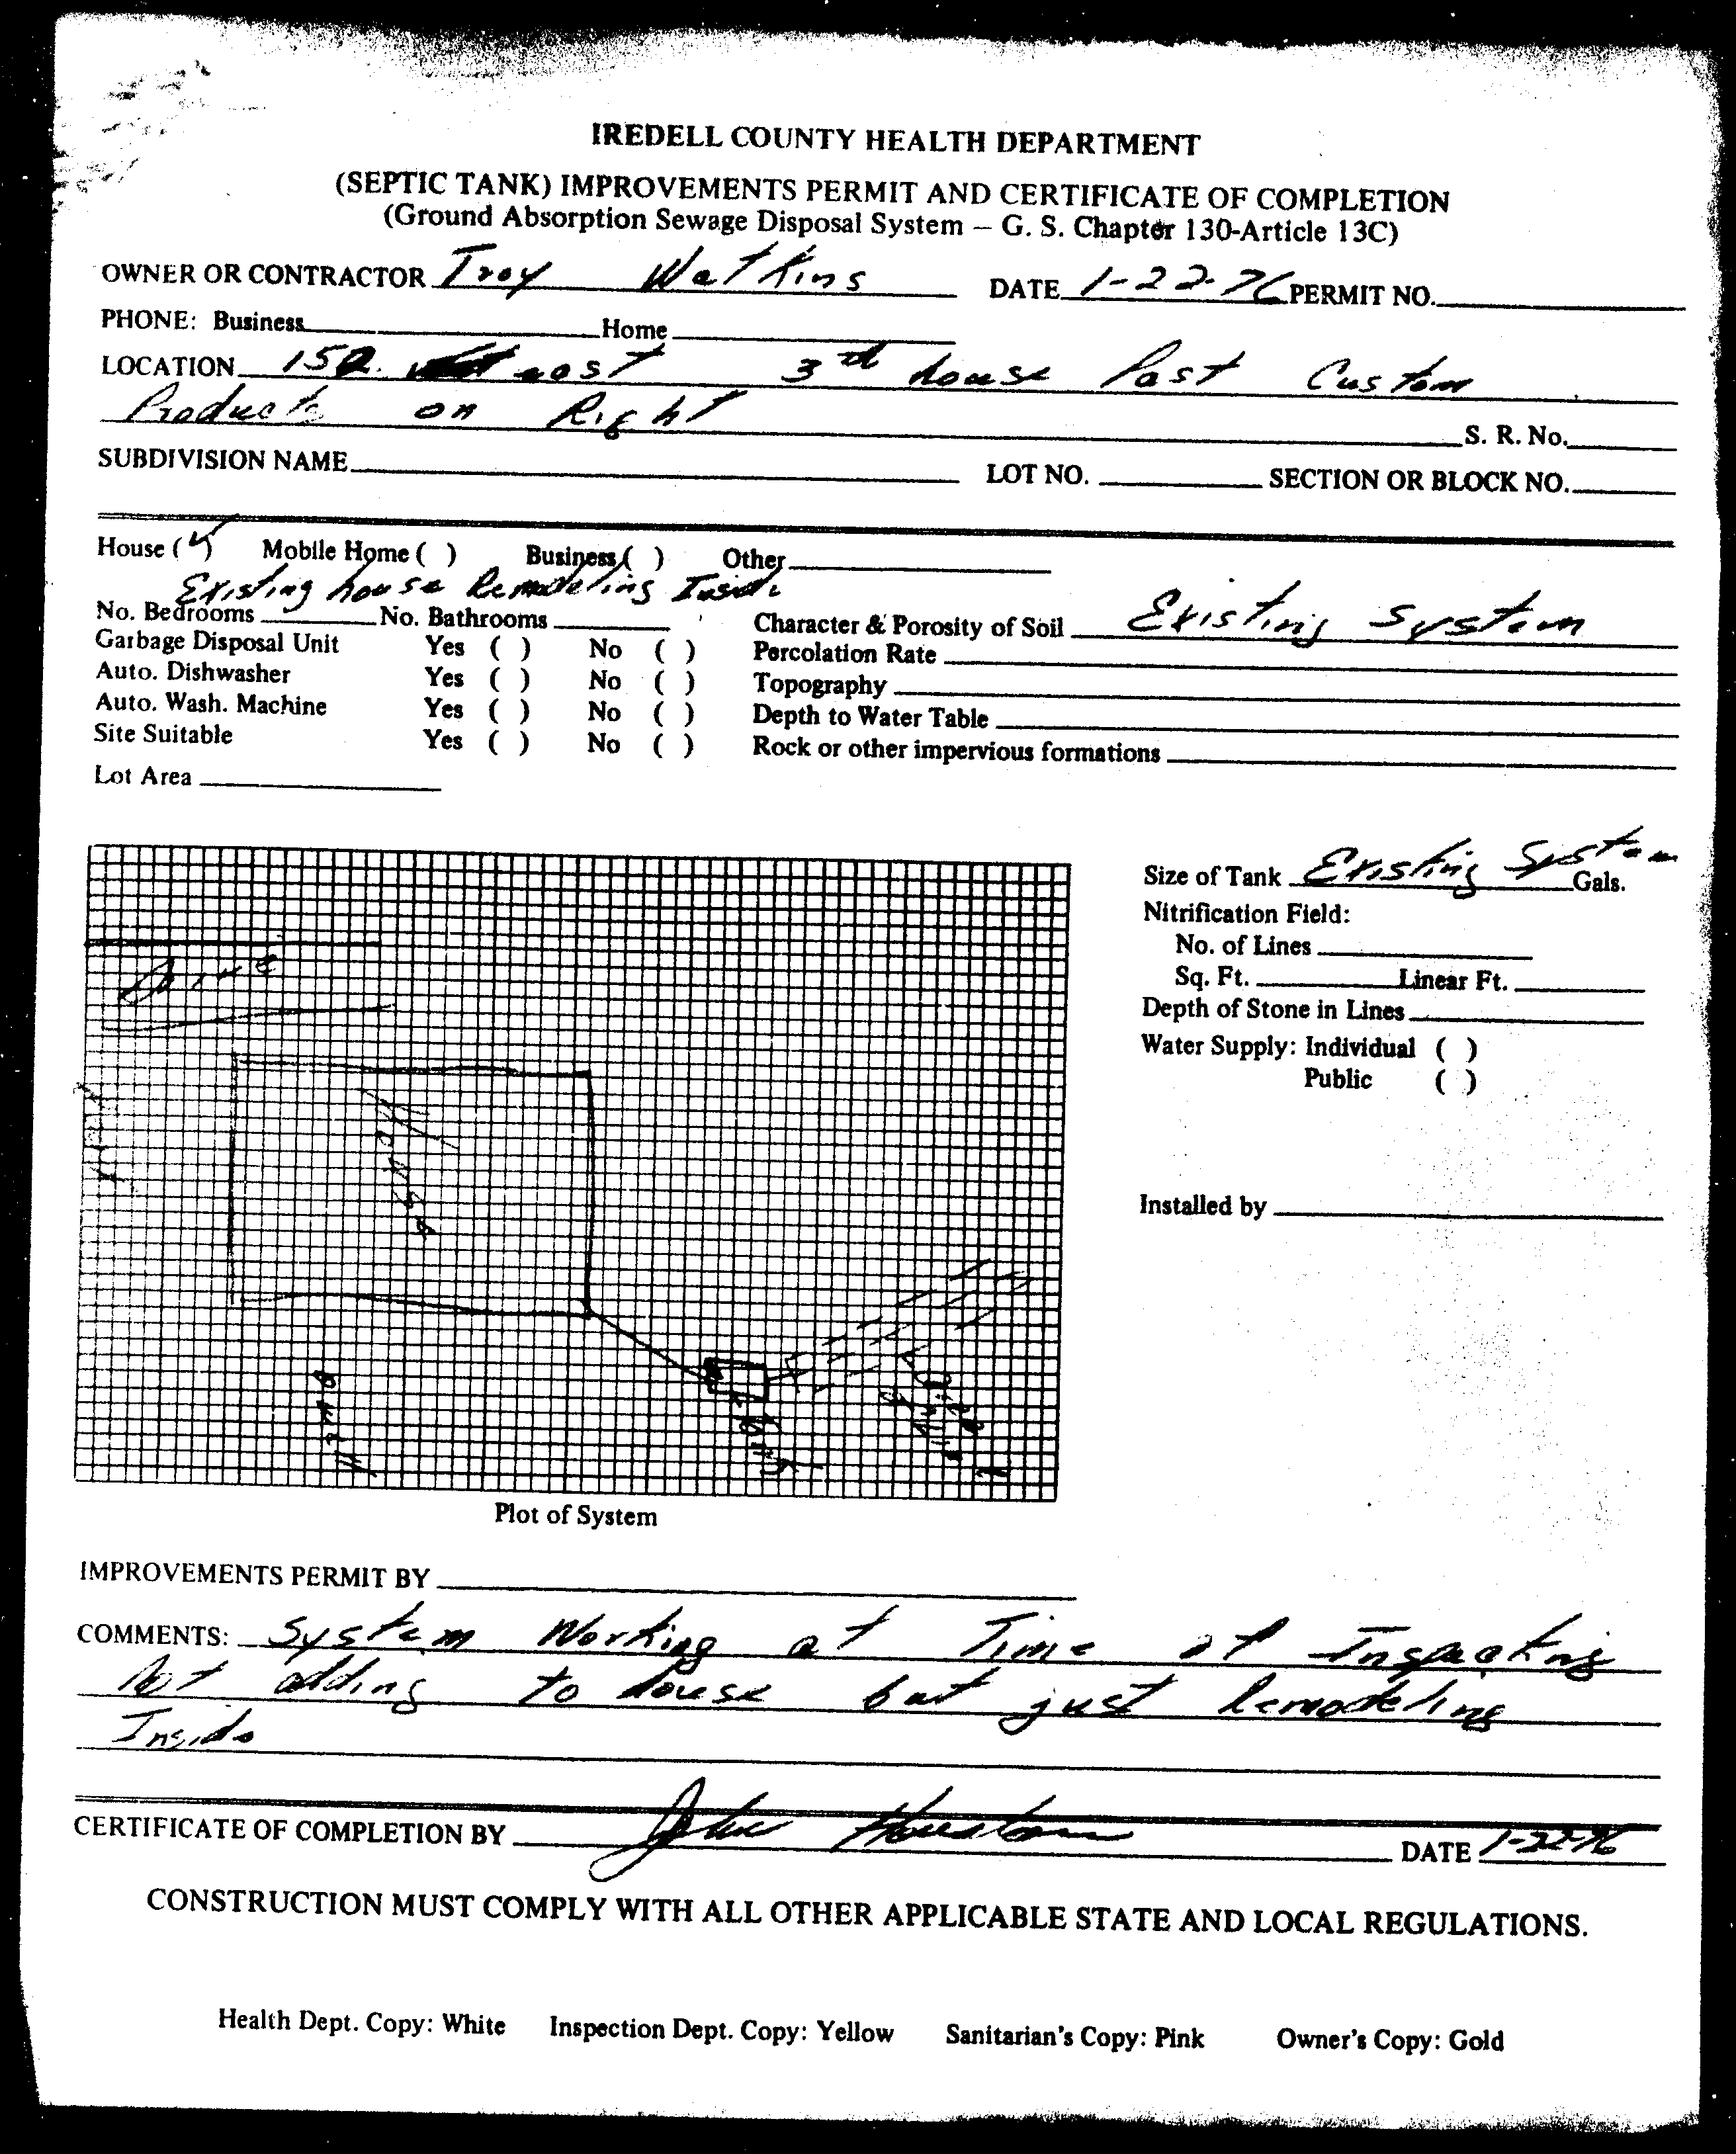 IREDELL COUNTY HEALTH DEPARTMENT
(SEPTIC TANK) IMPROVEMENTS PERMIT AND CERTIFICATE OF COMPLETION
(Ground Absorption Sewage Disposal System – G. S. Chapter 130-Article 13C)
OWNER OR CONTRACTOR Troy Watkins DATE 1-22-76 PERMIT NO.
PHONE: Business Home
LOCATION 150 east 3rd house Past Custom
Products on Right S. R. No.
SUBDIVISION NAME LOT NO. SECTION OR BLOCK NO.
House (✓) Mobile Home ( ) Business ( ) Other
Existing house Remodeling Inside
No. Bedrooms No. Bathrooms Character & Porosity of Soil Existing System
Garbage Disposal Unit Yes ( ) No ( ) Percolation Rate
Auto. Dishwasher Yes ( ) No ( ) Topography
Auto. Wash. Machine Yes ( ) No ( ) Depth to Water Table
Site Suitable Yes ( ) No ( ) Rock or other impervious formations
Lot Area
Size of Tank Existing System Gals.
Nitrification Field:
No. of Lines
Sq. Ft. Linear Ft.
Depth of Stone in Lines
Water Supply: Individual ( )
Public ( )
Installed by
Drive
House
Plot of System
IMPROVEMENTS PERMIT BY
COMMENTS: System Working at Time of Inspecting
Not adding to house but just Remodeling
Inside
CERTIFICATE OF COMPLETION BY John Houston DATE 1-22-76
CONSTRUCTION MUST COMPLY WITH ALL OTHER APPLICABLE STATE AND LOCAL REGULATIONS.
Health Dept. Copy: White Inspection Dept. Copy: Yellow Sanitarian's Copy: Pink Owner's Copy: Gold